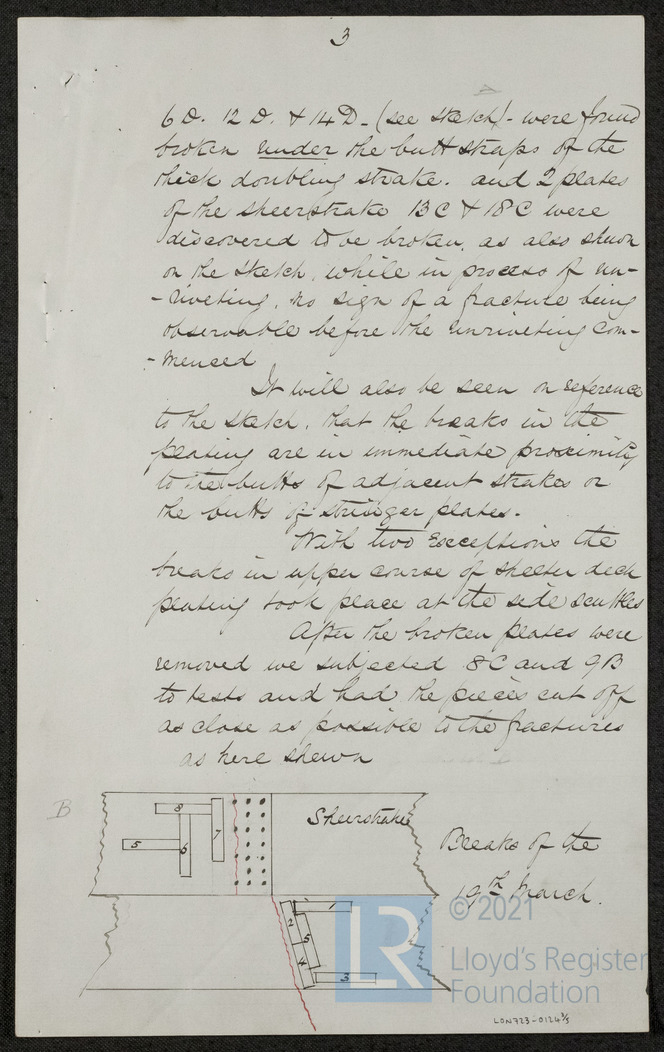 3
6 D. 12 D. & 14 D - (see sketch) - were found
broken under the butt straps of the
thick doubling strake. and 2 plates
of the sheerstrake 13 C & 18 C were
discovered to be broken, as also shewn
on the sketch, while in process of un-
- riveting, no sign of a fracture being
observable before the unriveting com-
- menced
It will also be seen on reference
to the sketch, that the breaks in the
plating are in immediate proximity
to the butts of adjacent strakes or
the butts of stringer plates.
With two exceptions the
breaks in upper course of shelter deck
plating took place at the side scuttles
After the broken plates were
removed we subjected 8C and 9B
to tests and had the pieces cut off
as close as possible to the fractures
as here shewn
B
8
5
6
7
Sheerstrake
Breaks of the
19th March.
1
2
5
4
3
© 2021
LR
Lloyd's Register
Foundation
LON723-0124 3/5